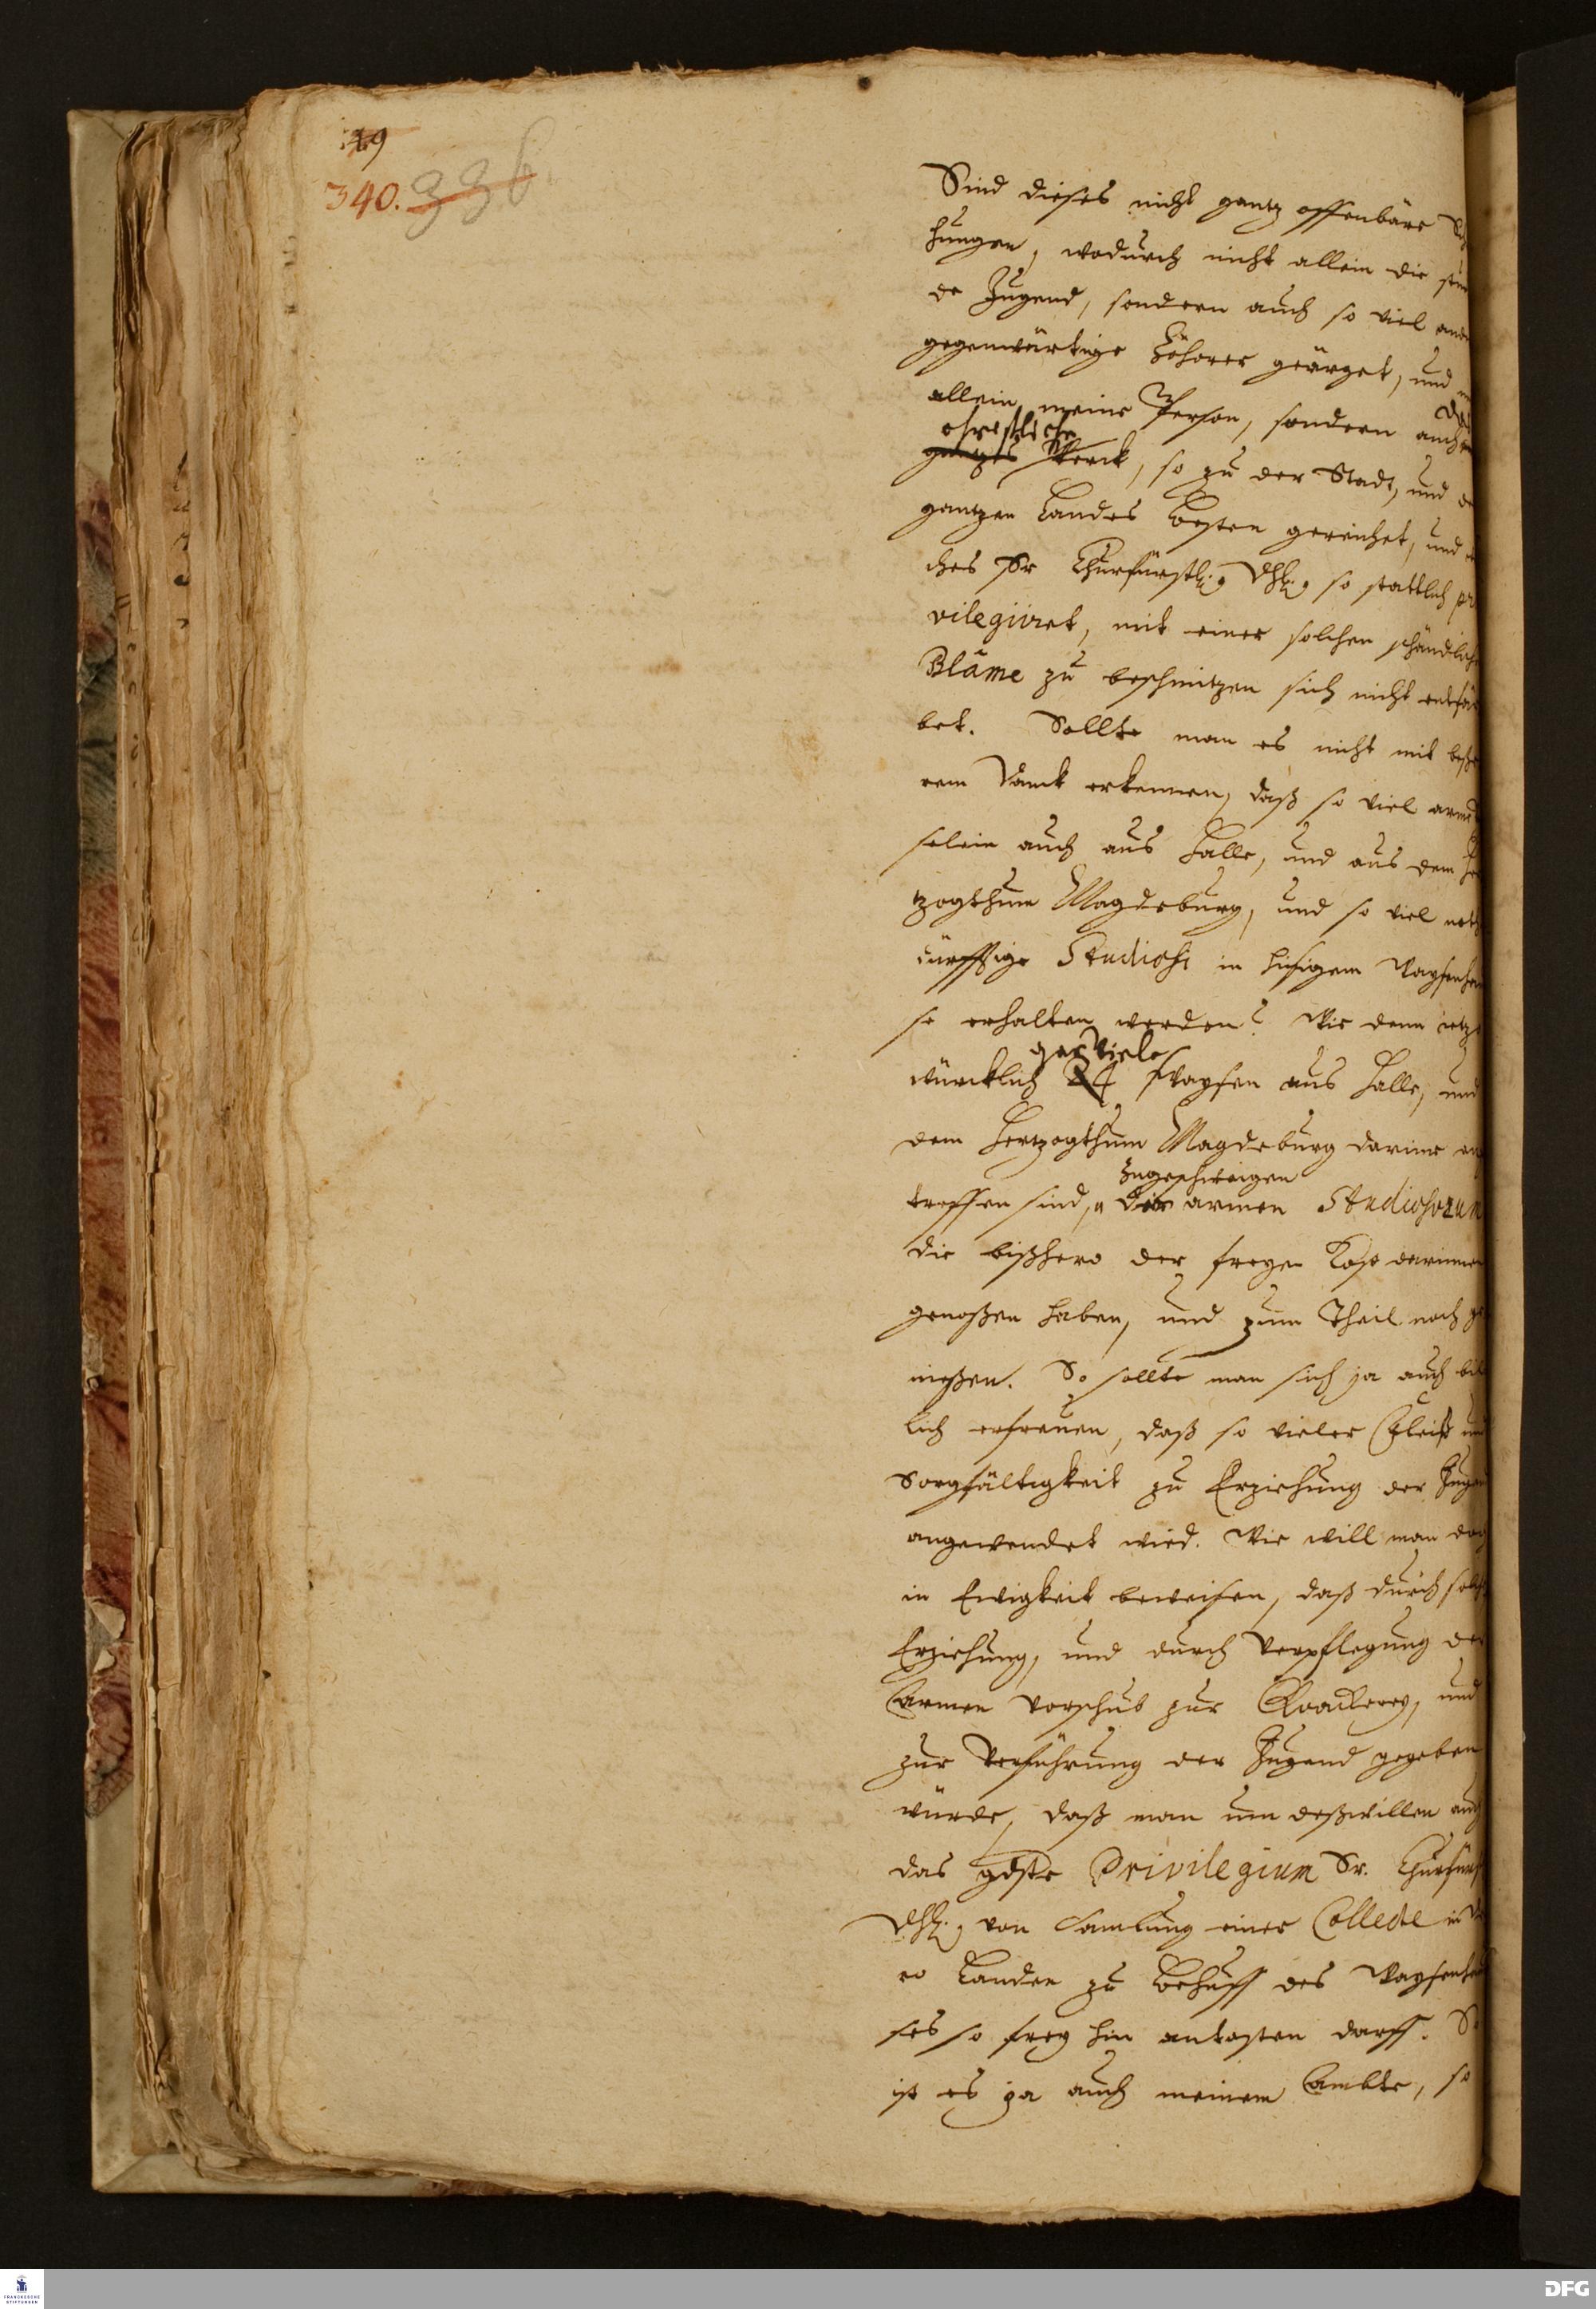 49
340. 336
Sind dieses nicht gantz offenbare
hungen, wodurch nicht allein die
de Jugend, sondern auch so viel
gegenwärtige Zuhörer geärget, und
allein meine Person, sondern auch das
christliche
gantzes Werck, so zu der Stadt, und
gantzen Landes Besten gereichet, und
ches Sr Churfürstl. Dhl. so stattlich pri
vilegiiret, mit einer solchen schändlichen
Blâme zu beschmitzen sich nicht entfär
bet. Sollte man es nicht mit
rem Danck erkennen, daß so viel arme
selein auch aus Halle, und aus dem Her
tzogthum Magdeburg, und so viel noth
dürfftige Studiosi in hisigem Waysenhau
se erhalten werden? Wie denn ietzo
gar viele
würcklich 24 Waysen aus Halle, und
dem Hertzogthum Magdeburg darinne an
zugeschweigen
treffen sind, der armen Studiosorum
die bißhero der freyen Kost darinnen
genoßen haben, und zum Theil noch ge
nießen. So sollte man sich ja auch bil
lich erfreuen, daß so vieler Fleiß und
Sorgfältigkeit zu Erziehung der Jugend
angewendet wird. Wie will man doch
in Ewigkeit beweisen, daß durch solche
Erziehung, und durch Verpflegung der
Armen Vorschub zur Quackerey, und
zur Verführung der Jugend gegeben
würde, daß man um deßwillen auch
das gdste Privilegium Sr. Churfürstl
Dhl. von Samlung einer Collecte in De
ro Landen zu Behuff des Waysenhau
ses so frey hin antasten darff. So
ist es ja auch meinem Ambte, so
FRANCKESCHE
STIFTUNGEN
DFG